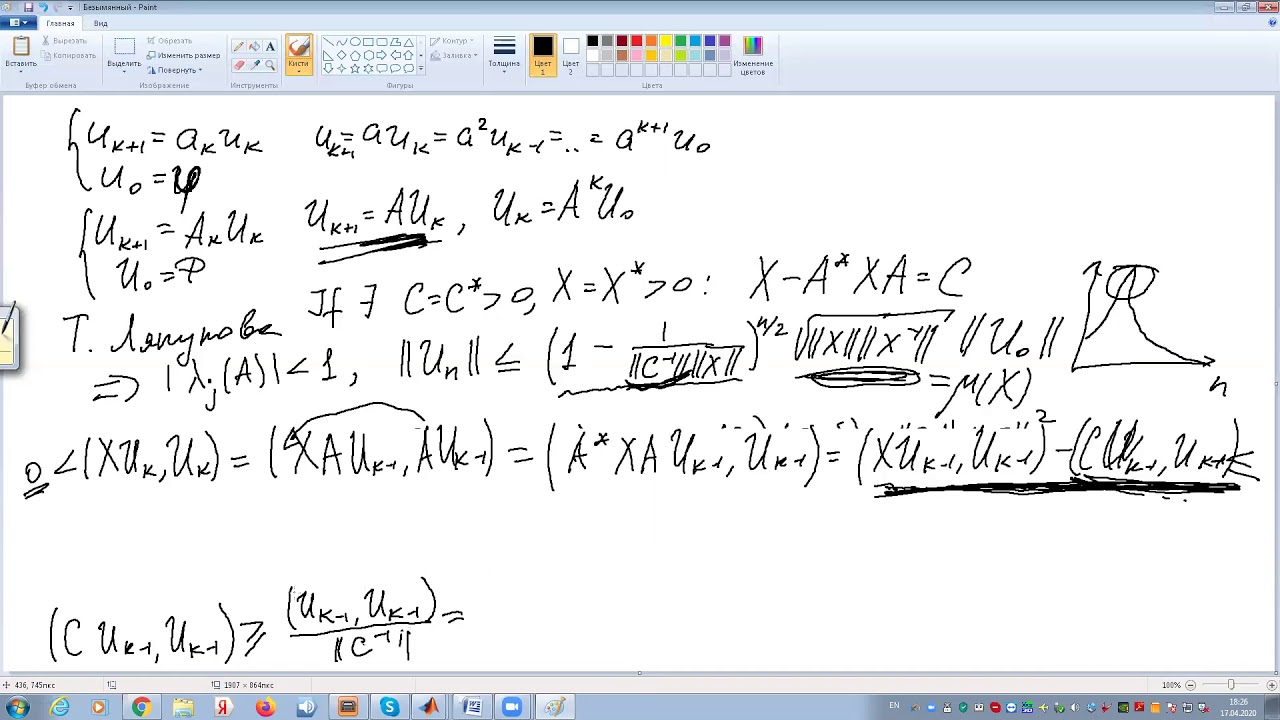 Безымянный - Paint
Главная Вид
Вставить Вырезать Копировать Буфер обмена
Выделить Обрезать Изменить размер Повернуть Изображение
Инструменты
Кисти
Контур Заливка Фигуры
Толщина
Цвет 1 Цвет 2 Изменение цветов Цвета
u_{k+1} = a_k u_k u_{k+1} = a u_k = a^2 u_{k-1} = .. = a^{k+1} u_0
u_0 = φ
U_{k+1} = A_k U_k U_{k+1} = A U_k , U_k = A^k U_0
U_0 = Φ
If ∃ C = C^* > 0, X = X^* > 0 : X - A^* X A = C
Т. Ляпунова
⇒ |λ_j(A)| < 1, ||U_n|| ≤ (1 - 1/(||C^{-1}|| ||X||))^{n/2} √(||X|| ||X^{-1}||) ||U_0||
= μ(X)
n
0 < (X U_k, U_k) = (X A U_{k-1}, A U_{k-1}) = (A^* X A U_{k-1}, U_{k-1}) = (X U_{k-1}, U_{k-1}) - (C U_{k-1}, U_{k-1}) ≤
(C U_{k-1}, U_{k-1}) ≥ (U_{k-1}, U_{k-1})/||C^{-1}|| =
436, 745пкс 1907 × 864пкс 100%
EN 18:26
17.04.2020